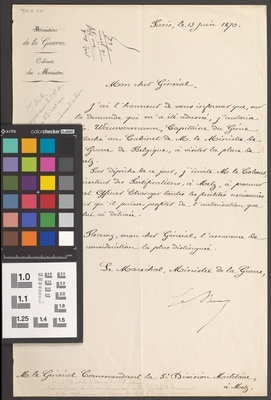 Ministère
de la Guerre.
Cabinet
du Ministre
Paris, le 13 Juin 1870.
Mon cher Général,
J'ai l'honneur de vous informer que, sur
la demande qui m'a été adressée, j'autorise
Wauwermann, Capitaine du Génie
attaché au Cabinet de M. le Ministre de
Guerre de Belgique, à visiter la place de
Metz.
Par dépêche de ce jour, j'invite M. le Colonel
Directeur des Fortifications, à Metz, à prouver
cet Officier Etranger toutes les facilités nécessaires
qu'il puisse profiter de l'autorisation que
lui ai délivrée.
Recevez, mon cher Général, l'assurance de
considération la plus distinguée.
Le Maréchal, Ministre de la Guerre,
M. le Général Commandant la 5e Division Militaire,
à Metz.
x-rite
colorchecker CLASSIC
1.0
1.1
1.25
1.4
1.6